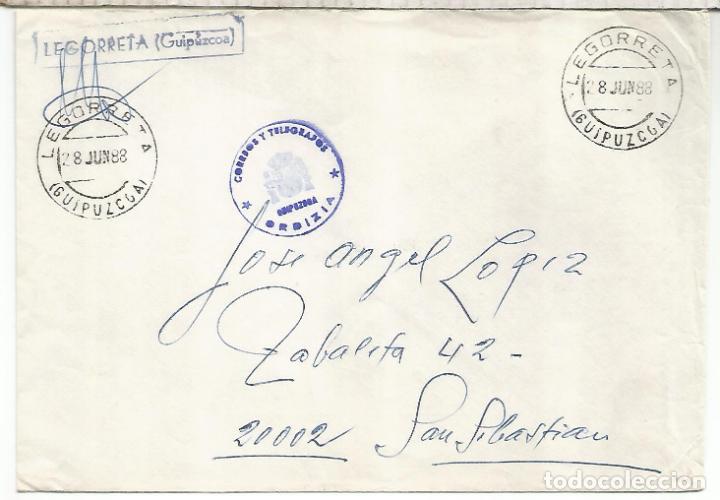 LEGORRETA (Guipúzcoa)
LEGORRETA
28 JUN 88
(GUIPUZCOA)
LEGORRETA
28 JUN 88
(GUIPUZCOA)
CORREOS Y TELEGRAFOS
GUIPUZCOA
ORDIZIA
Jose Angel Lopez
Zabaleta 42-
20002 San Sebastian
todocoleccion
todocoleccion.net